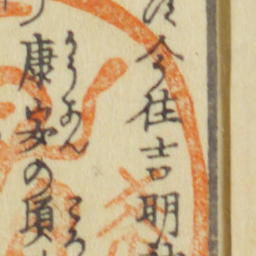 今住吉明神
り康安の頃
かうあん
ころ